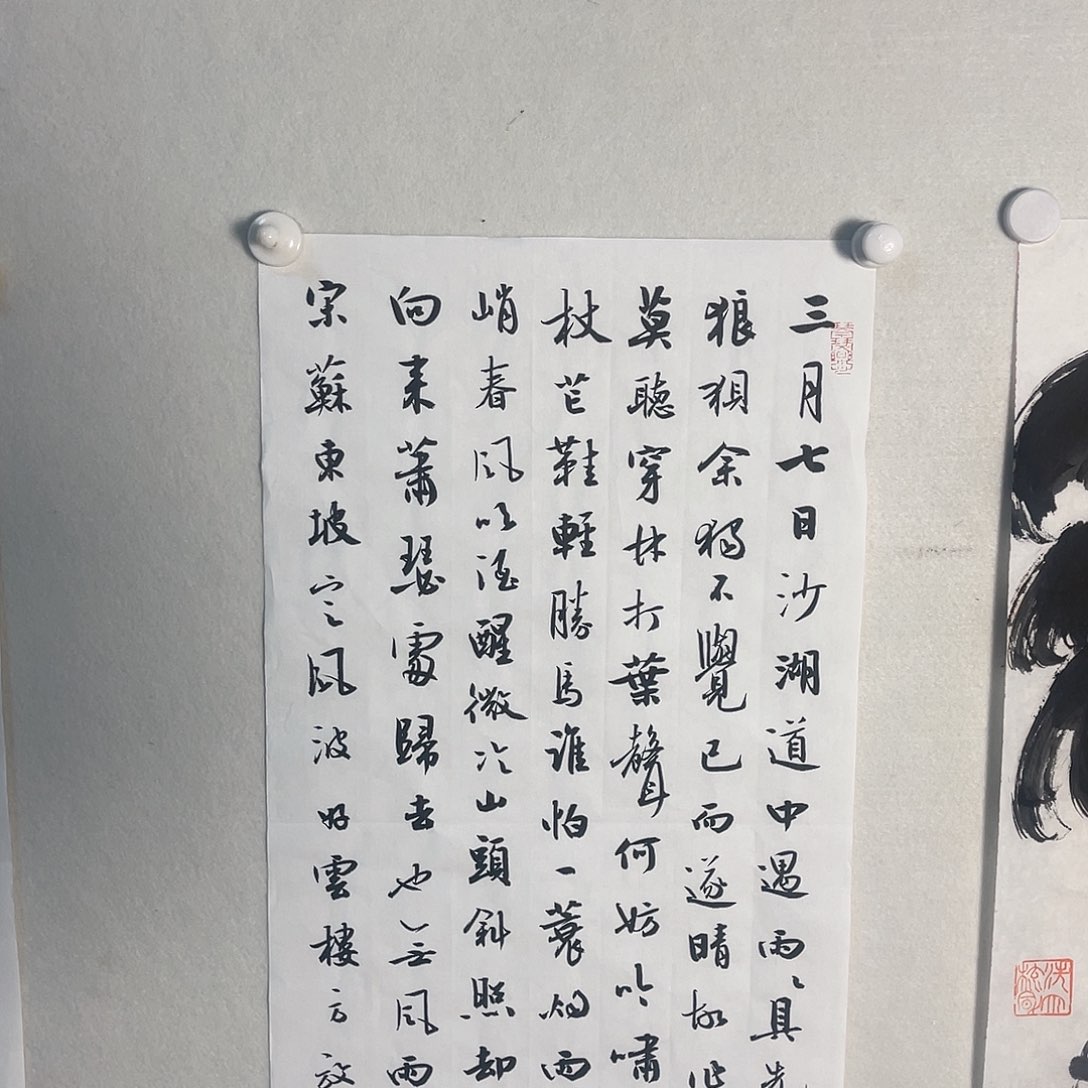 三月七日沙湖道中遇雨〻具先
狼狽余獨不覺已而遂晴故作
莫聽穿林打葉聲何妨吟嘯
杖芒鞋輕勝馬誰怕一蓑烟雨
峭春風吹酒醒微冷山頭斜照却
向来蕭瑟處歸去也無風雨
宋蘇東坡定風波 好雲樓主放